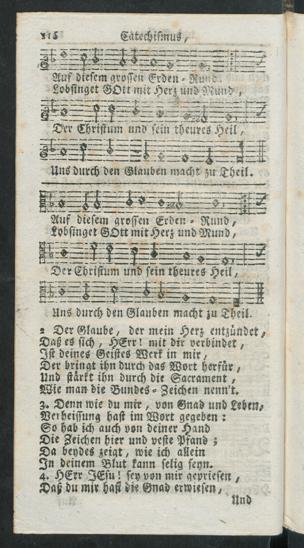 216 Catechismus,
Auf diesem grossen Erden-Rund.
Lobsinget GOtt mit Herz und Mund,
Der Christum und sein theures Heil,
Uns durch den Glauben macht zu Theil.
Auf diesem grossen Erden-Rund,
Lobsinget GOtt mit Herz und Mund,
Der Christum und sein theures Heil,
Uns durch den Glauben macht zu Theil.
2 Der Glaube, der mein Herz entzündet,
Daß es sich, HErr! mit dir verbindet,
Ist deines Geistes Werk in mir,
Der bringt ihn durch das Wort herfür,
Und stärkt ihn durch die Sacrament,
Wie man die Bundes-Zeichen nenn't.
3. Denn wie du mir, von Gnad und Leben,
Verheissung hast im Wort gegeben:
So hab ich auch von deiner Hand
Die Zeichen hier und veste Pfand;
Da beydes zeigt, wie ich allein
In deinem Blut kann selig seyn.
4. HErr JEsu! sey von mir gepriesen,
Daß du mir hast die Gnad erwiesen,
Und